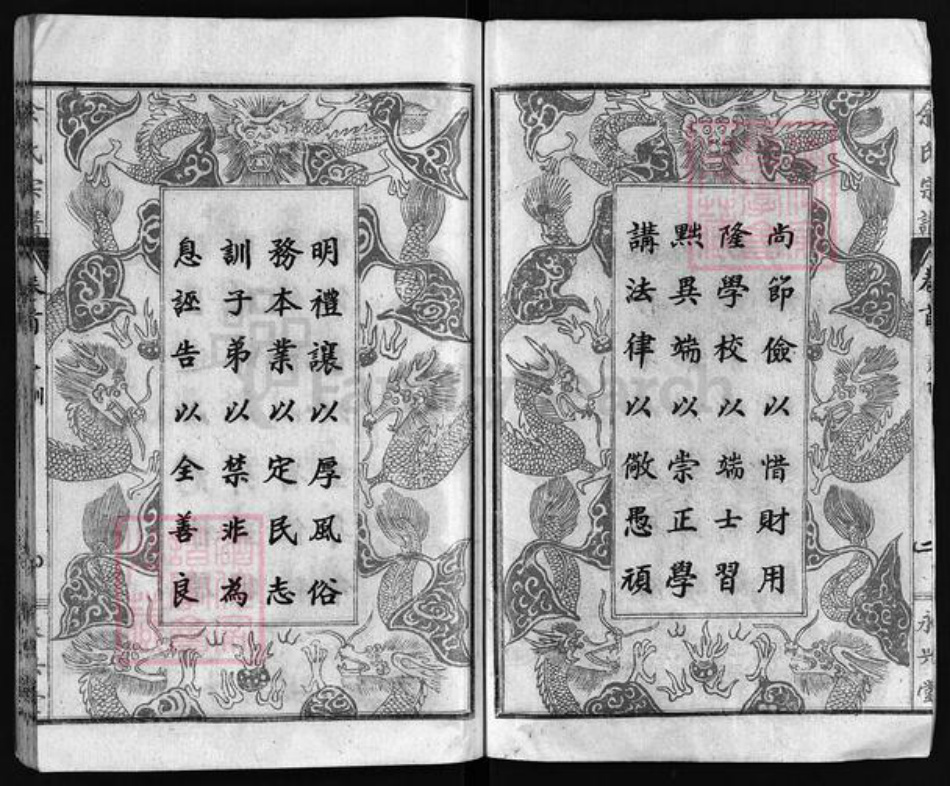 尚節儉以惜財用
隆學校以端士習
黜異端以崇正學
講法律以儆愚頑
明禮讓以厚風俗
務本業以定民志
訓子弟以禁非為
息誣告以全善良
氏宗譜
卷首
永
FamilySearch